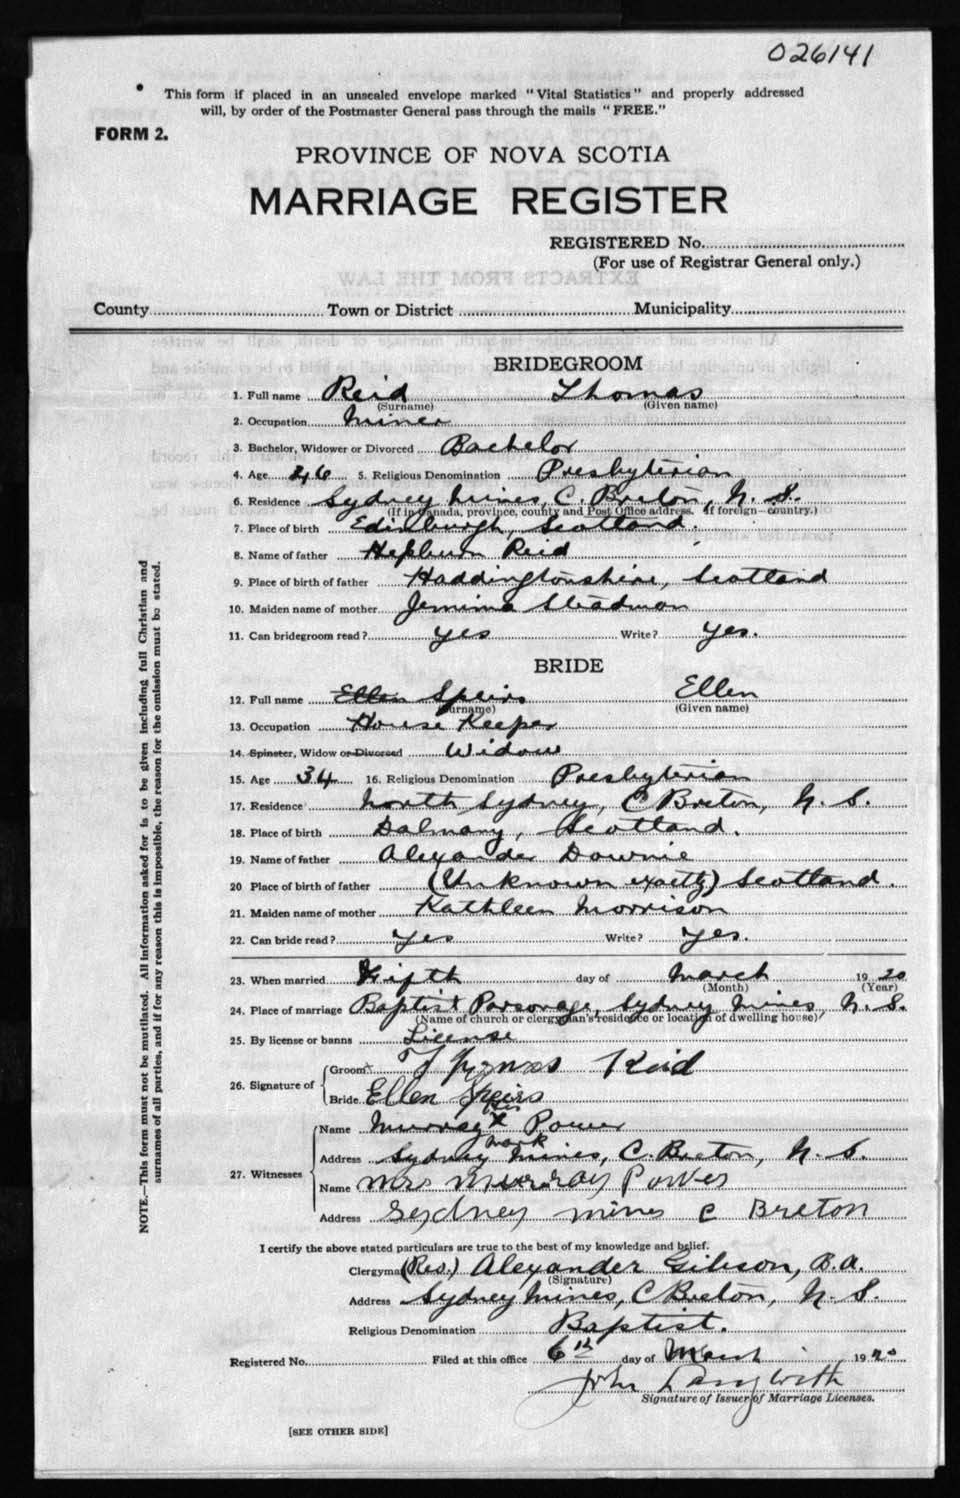 026141
This form if placed in an unsealed envelope marked "Vital Statistics" and properly addressed
will, by order of the Postmaster General pass through the mails "FREE."
FORM 2.
PROVINCE OF NOVA SCOTIA
MARRIAGE REGISTER
REGISTERED No.
(For use of Registrar General only.)
EXTRACTS FROM THE LAW
County Town or District Municipality
BRIDEGROOM
1. Full name Reid Thomas
(Surname) (Given name)
2. Occupation Miner
3. Bachelor, Widower or Divorced Bachelor
4. Age 46 5. Religious Denomination Presbyterian
6. Residence Sydney Mines, C. Breton, N. S.
(If in Canada, province, county and Post Office address. If foreign—country.)
7. Place of birth Edinburgh, Scotland.
8. Name of father Hepburn Reid
9. Place of birth of father Haddingtonshire, Scotland
10. Maiden name of mother Jemima Steadman
11. Can bridegroom read? yes Write? yes.
BRIDE
12. Full name Ellen Speirs Ellen
(Surname) (Given name)
13. Occupation House Keeper
14. Spinster, Widow or Divorced Widow
15. Age 34 16. Religious Denomination Presbyterian
17. Residence North Sydney, C Breton, N. S.
18. Place of birth Dalmany, Scotland.
19. Name of father Alexander Downie
20 Place of birth of father (Unknown exactly) Scotland.
21. Maiden name of mother Kathleen Morrison
22. Can bride read? yes Write? yes.
23. When married Fifth day of March 1920
(Month) (Year)
24. Place of marriage Baptist Parsonage, Sydney Mines, N. S.
(Name of church or clergyman's residence or location of dwelling house)
25. By license or banns License
26. Signature of Groom Thomas Reid
Bride Ellen Speirs
his
27. Witnesses Name Murray X Power
mark
Address Sydney Mines, C. Breton, N. S.
Name Mrs Murray Power
Address Sydney mines C Breton
I certify the above stated particulars are true to the best of my knowledge and belief.
Clergyman (Rev.) Alexander Gibson, B.A.
(Signature)
Address Sydney Mines, C Breton, N. S.
Religious Denomination Baptist.
Registered No. Filed at this office 6th day of March 1920
John Langwith
Signature of Issuer of Marriage Licenses.
[SEE OTHER SIDE]
NOTE.—This form must not be mutilated. All information asked for is to be given including full Christian and
surnames of all parties, and if for any reason this is impossible, the reason for the omission must be stated.